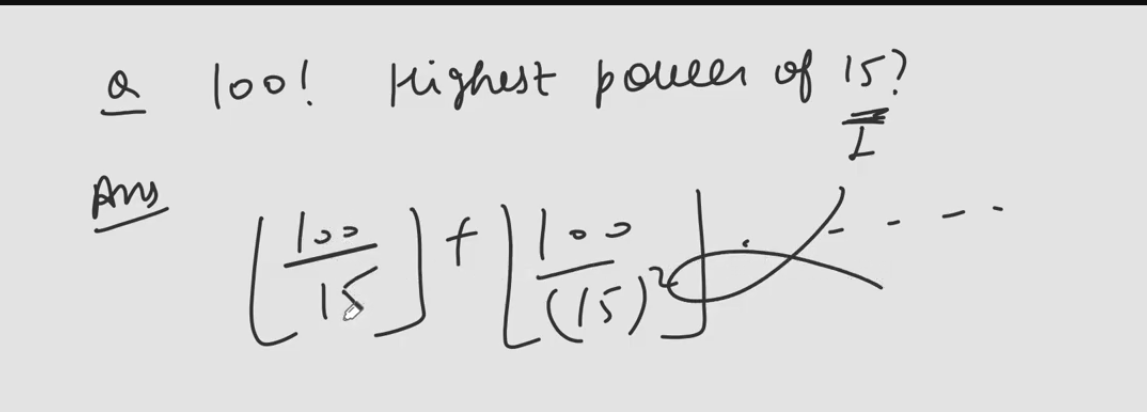 Q 100! Highest power of 15?
I
Ans
[100/15] + [100/(15)²] - - - -